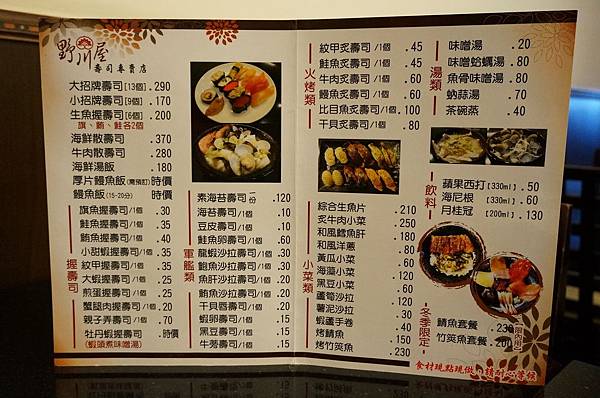 野川屋
壽司專賣店
大招牌壽司【13個】.290
小招牌壽司【9個】.170
生魚握壽司【6個】.200
旗、鮪、鮭各2個
海鮮散壽司 .370
牛肉散壽司 .280
海鮮湯飯 .180
厚片鰻魚飯(需預訂)時價
鰻魚飯(15-20分) 時價
握壽司
旗魚握壽司/1個 .30
鮭魚握壽司/1個 .35
鮪魚握壽司/1個 .40
小甜蝦握壽司/1個 .35
紋甲握壽司/1個 .35
大蝦握壽司/1個 .25
煎蛋握壽司/1個 .25
蟹腿肉握壽司/1個 .20
親子弄壽司/1個 .70
牡丹蝦握壽司 .時價
(蝦頭煮味噌湯)
軍艦類
素海苔壽司一份 .120
海苔壽司/1個 .10
豆皮壽司/1個 .10
鮭魚卵壽司/1個 .60
龍蝦沙拉壽司/1個 .30
鮑魚沙拉壽司/1個 .30
魚肝沙拉壽司/1個 .20
鮪魚沙拉壽司/1個 .20
干貝唇壽司/1個 .20
蝦卵壽司/1個 .15
黑豆壽司/1個 .15
牛蒡壽司/1個 .15
火烤類
紋甲炙壽司/1個 .45
鮭魚炙壽司/1個 .45
牛肉炙壽司/1個 .60
鰻魚炙壽司/1個 .60
比目魚炙壽司/1個.100
干貝炙壽司/1個 .80
小菜類
綜合生魚片 .210
炙牛肉小菜 .250
和風鱈魚肝 .180
和風洋蔥 .80
黃瓜小菜 .60
海藻小菜 .120
黑豆小菜 .60
蘆筍沙拉 .120
薯泥沙拉 .30
蝦蘆手卷 .40
烤鯖魚 .150
烤竹筴魚 .230
湯類
味噌湯 .20
味噌蛤蠣湯 .80
魚骨味噌湯 .80
蚋蒜湯 .70
茶碗蒸 .40
飲料
蘋果西打【330ml】.50
海尼根【330ml】.60
月桂冠【200ml】.130
冬季限定
鯖魚套餐 .230
竹筴魚套餐 .200
食材現點現做，請耐心等候